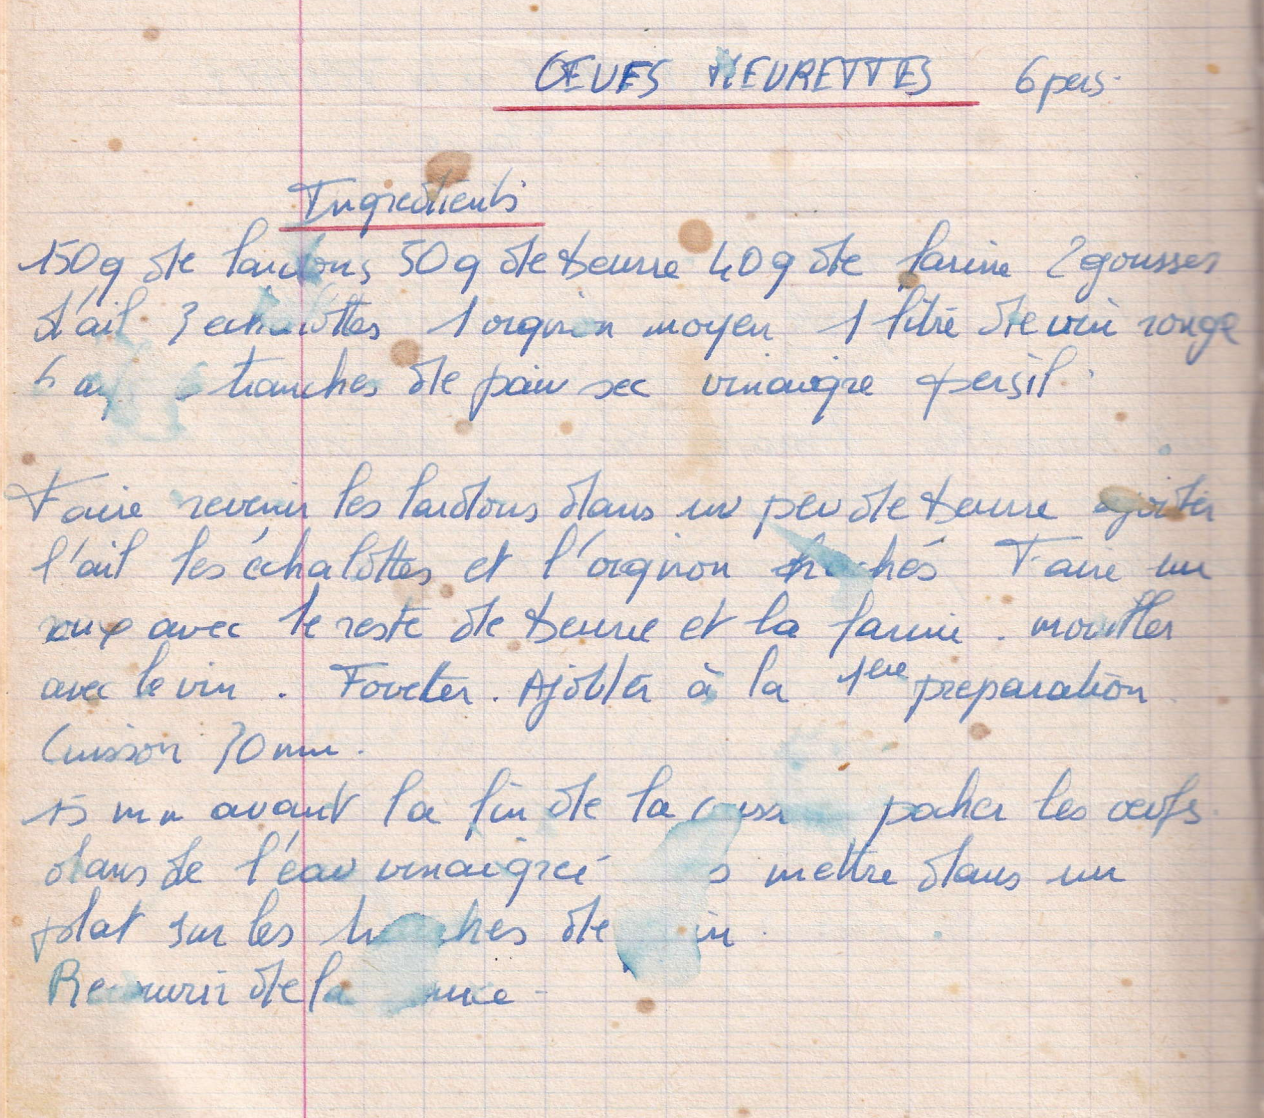 OEUFS MEURETTES 6 pers.
Ingredients
150g de lardons 50g de beurre 40g de farine 2 gousses
d'ail 3 echalottes 1 oignon moyen 1 litre de vin rouge
6 tranches de pain sec vinaigre persil.
Faire revenir les lardons dans un peu de beurre ajouter
l'ail les échalottes et l'oignon hachés Faire un
roux avec le reste de beurre et la farine. mouiller
avec le vin. Fouetter. Ajouter à la 1ere preparation
Cuisson 30 mn.
15 mn avant la fin de la pocher les oeufs
dans de l'eau vinaigrée mettre dans un
plat sur les tranches de
Recouvrir de la sauce.